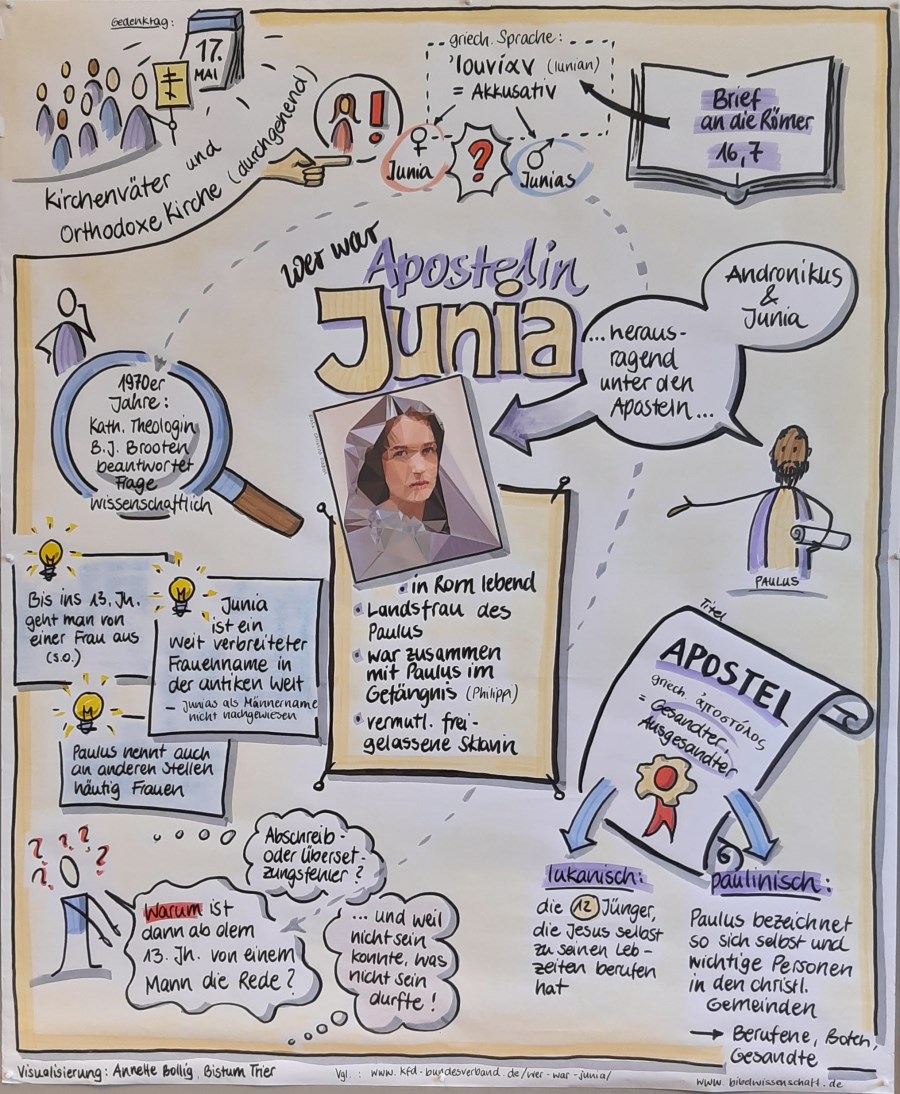 Gedenktag:
17.
MAI
Kirchenväter und
Orthodoxe Kirche (durchgehend)
!
griech. Sprache:
'Ιουνίαν (Iunian)
= Akkusativ
♀
Junia
?
♂
Junias
Brief
an die Römer
16,7
Wer war
Apostelin
Junia
Andronikus
&
Junia
...heraus-
ragend
unter den
Aposteln...
PAULUS
1970er
Jahre:
Kath. Theologin
B.J. Brooten
beantwortet
Frage
wissenschaftlich
Bis ins 13. Jh.
geht man von
einer Frau aus
(s.o.)
Junia
ist ein
weit verbreiteter
Frauenname in
der antiken Welt
– Junias als Männername
nicht nachgewiesen
Paulus nennt auch
an anderen Stellen
häufig Frauen
• in Rom lebend
• Landsfrau des
Paulus
• war zusammen
mit Paulus im
Gefängnis (Philippi)
• vermutl. frei-
gelassene Sklavin
Titel
APOSTEL
griech. ἀποστόλος
= Gesandter,
Ausgesandter
lukanisch:
die 12 Jünger,
die Jesus selbst
zu seinen Leb-
zeiten berufen
hat
paulinisch:
Paulus bezeichnet
so sich selbst und
wichtige Personen
in den christl.
Gemeinden
→ Berufene, Boten,
Gesandte
? ? ? ? ?
Abschreib-
oder Überset-
zungsfehler?
Warum ist
dann ab dem
13. Jh. von einem
Mann die Rede?
... und weil
nicht sein
konnte, was
nicht sein
durfte!
Visualisierung: Annette Bollig, Bistum Trier
Vgl.: www.kfd-bundesverband.de/wer-war-junia/
www.bibelwissenschaft.de